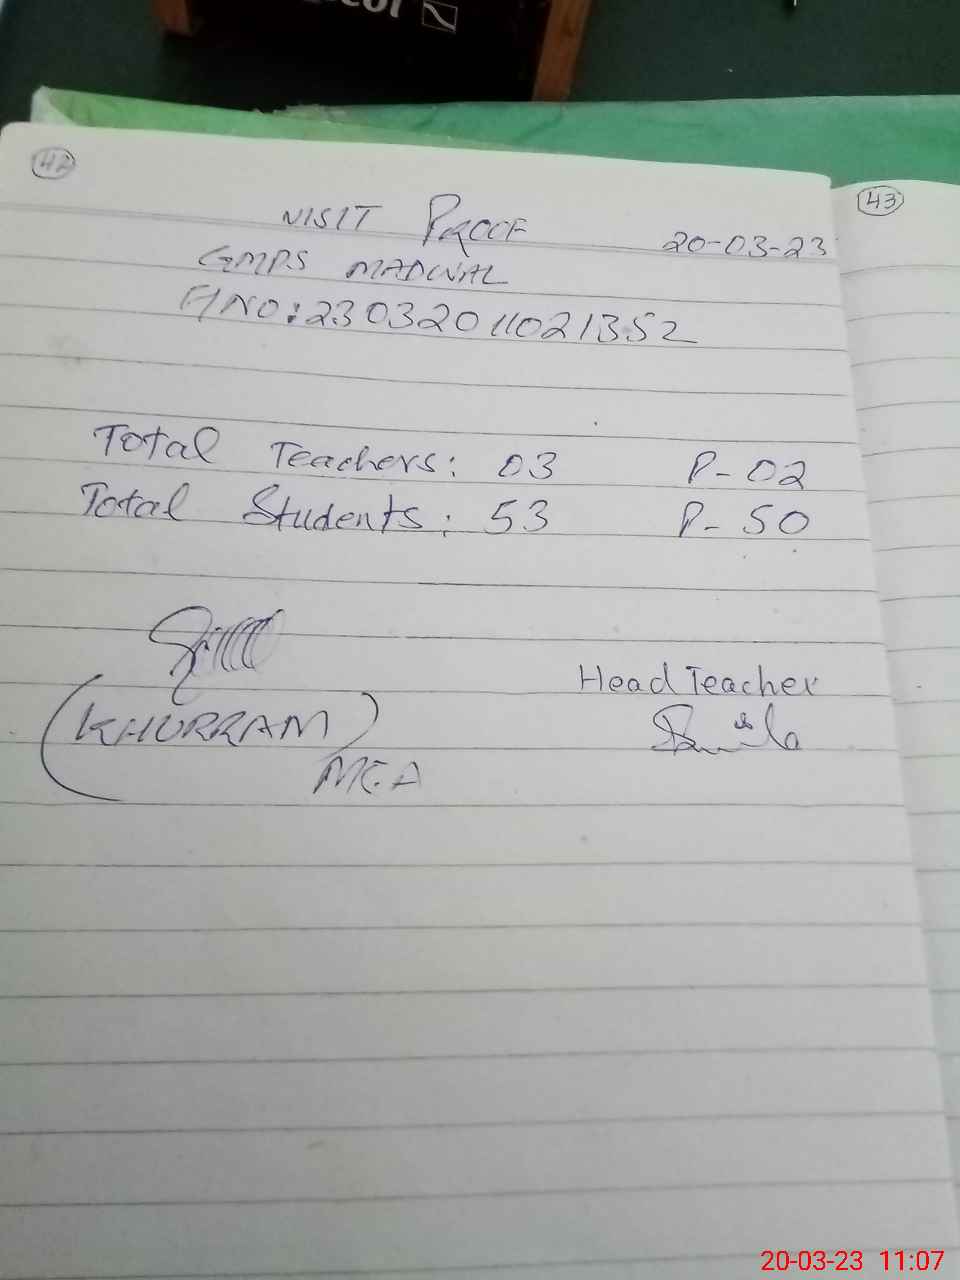 42
43
VISIT PROOF
20-03-23
GMPS MADWAL
A/NO: 23032011021352
Total Teachers: 03 P-02
Total Students: 53 P-50
Head Teacher
(KHURRAM)
MEA
20-03-23 11:07